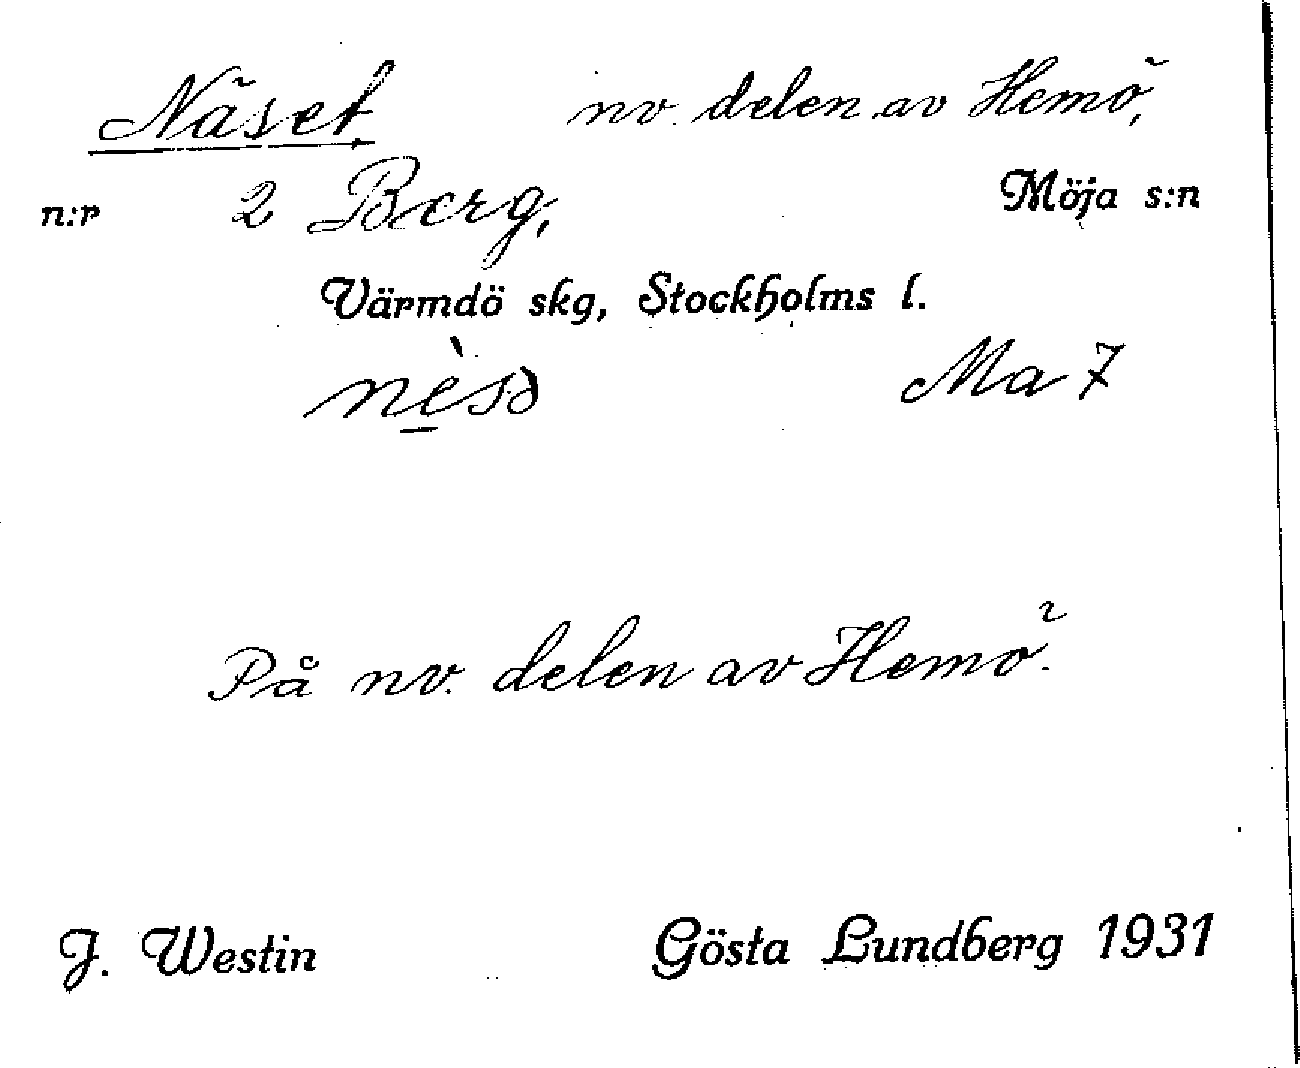 Näset nv. delen av Hemö,
n:r 2 Berg, Möja s:n
Värmdö skg, Stockholms l.
Ma 7
På nv. delen av Hemö.
J. Westin Gösta Lundberg 1931